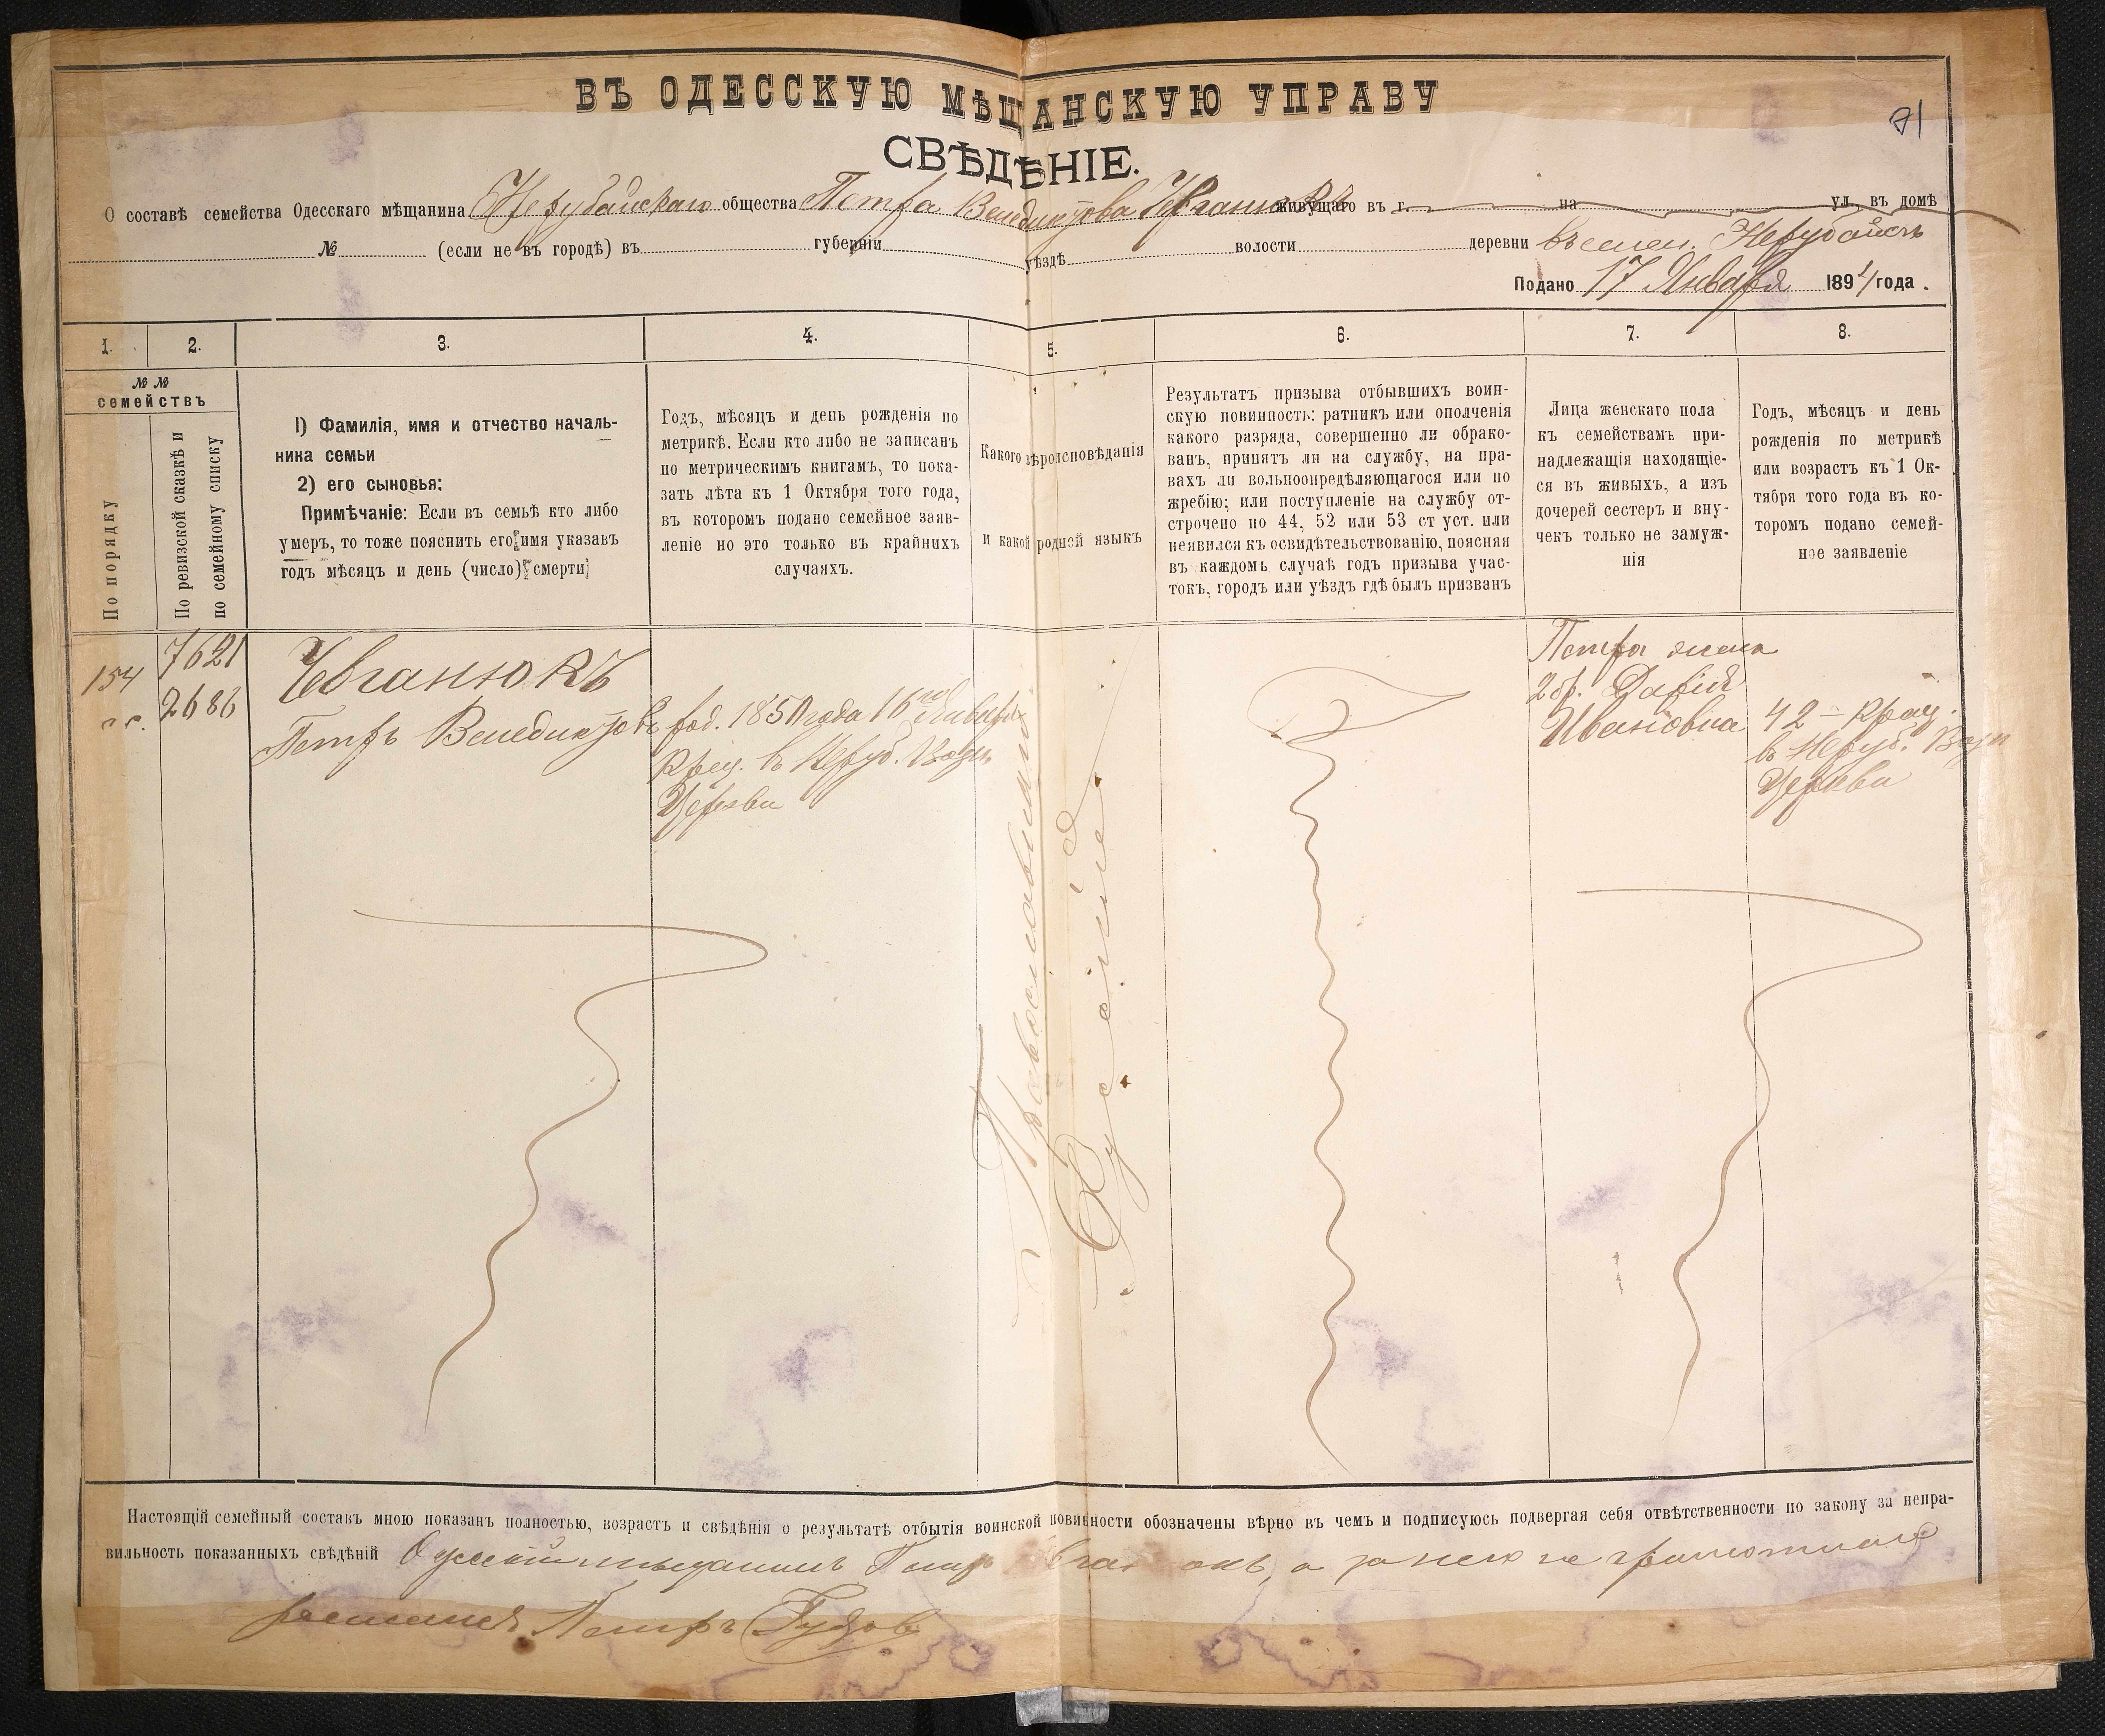 ВЪ ОДЕССКУЮ МѢЩАНСКУЮ УПРАВУ
71
СВѢДѢНІЕ.
О составѣ семейства Одесскаго мѣщанина Нерубайскаго общества Петра Венедиктова Чевганюкъ живущаго въ г. на ул. въ домѣ
№ (если не въ городѣ) въ губерніи уѣздѣ волости деревни въ селен. Нерубайскъ
Подано 17 Января 1894 года.
1. 2. 3. 4. 5. 6. 7. 8.
№ №
семействъ
По порядку
По ревизской сказкѣ и
по семейному списку
1) Фамилія, имя и отчество началь-
ника семьи
2) его сыновья:
Примѣчаніе: Если въ семьѣ кто либо
умеръ, то тоже пояснить его имя указавъ
годъ мѣсяцъ и день (число) смерти
Годъ, мѣсяцъ и день рожденія по
метрикѣ. Если кто либо не записанъ
по метрическимъ книгамъ, то пока-
зать лѣта къ 1 Октября того года,
въ которомъ подано семейное заяв-
леніе но это только въ крайнихъ
случаяхъ.
Какого вѣроисповѣданія
и какой родной языкъ
Результатъ призыва отбывшихъ воин-
скую повинность: ратникъ или ополченія
какого разряда, совершенно ли обрако-
ванъ, принятъ ли на службу, на пра-
вахъ ли вольноопредѣляющагося или по
жребію; или поступленіе на службу от-
строчено по 44, 52 или 53 ст уст. или
неявился къ освидѣтельствованію, поясняя
въ каждомъ случаѣ годъ призыва учас-
токъ, городъ или уѣздъ гдѣ былъ призванъ
Лица женскаго пола
къ семействамъ при-
надлежащія находящіе-
ся въ живыхъ, а изъ
дочерей сестеръ и вну-
чекъ только не замуж-
нія
Годъ, мѣсяцъ и день
рожденія по метрикѣ
или возрастъ къ 1 Ок-
тября того года въ ко-
торомъ подано семей-
ное заявленіе
154
с. с.
7621
2686
Чевганюкъ
Петръ Венедиктовъ
род. 1851 года 16го Января
Крещ. в Неруб. Возн
Церкви
Православнаго
Русскіе
Петра жена
2 бр. Дарія
Ивановна
42 - Крещ.
в Неруб. Возн
Церкви
Настоящій семейный составъ мною показанъ полностью, возрастъ и свѣдѣнія о результатѣ отбытія воинской повинности обозначены вѣрно въ чемъ и подписуюсь подвергая себя отвѣтственности по закону за непра-
вильность показанныхъ свѣдѣній Одесскій мѣщанинъ Петръ а за него не грамотнаго
росписался Петръ Гудзов